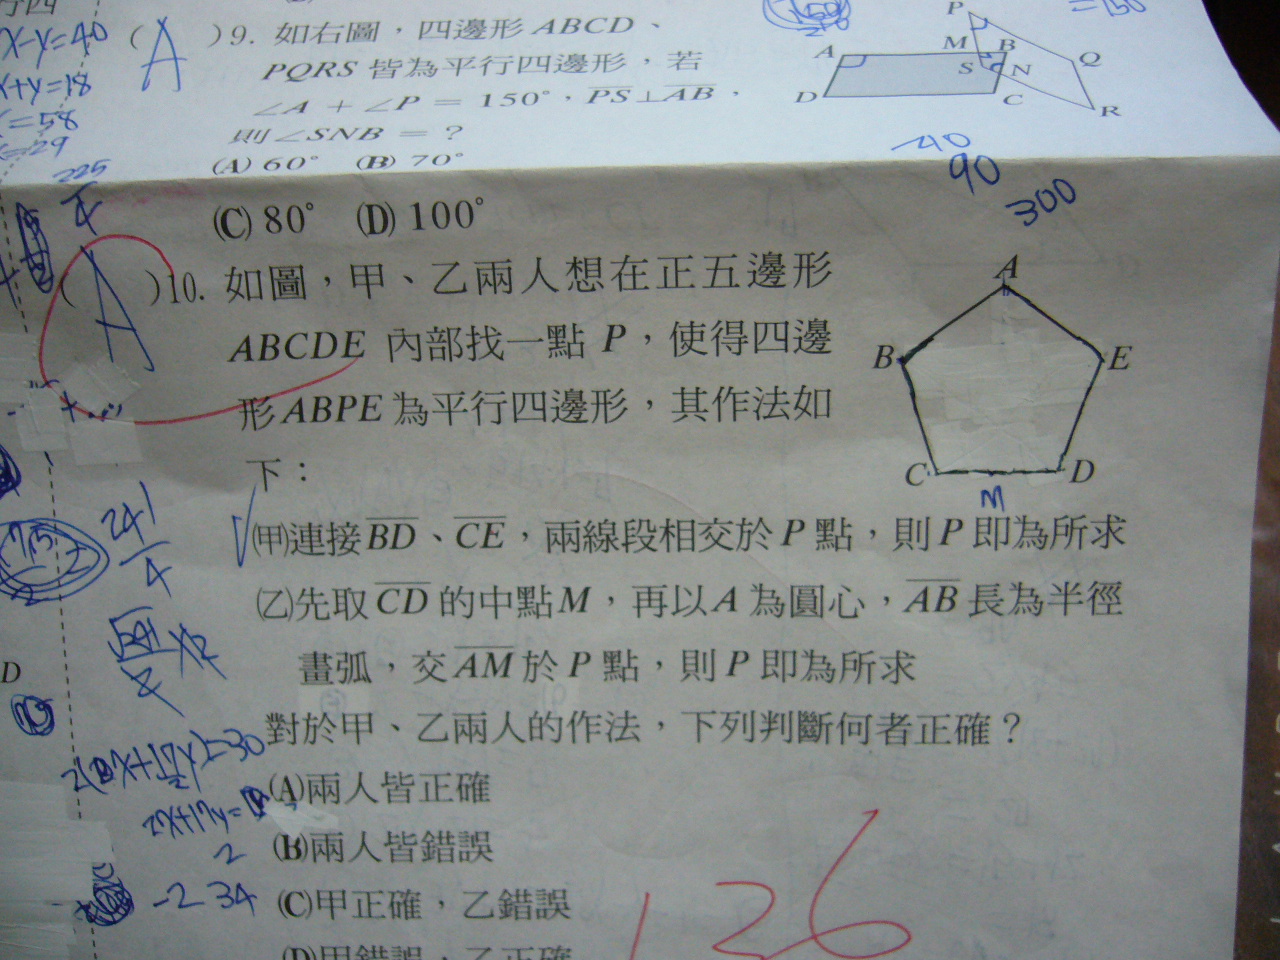 x-y=40
x+y=18
=58
=29
( A )9. 如右圖，四邊形ABCD、
PQRS 皆為平行四邊形，若
∠A + ∠P = 150°，PS⊥AB，
則∠SNB = ?
(A) 60° (B) 70°
(C) 80° (D) 100°
P
A
M
B
Q
S
N
D
C
R
=150
40
90
300
225
4
( A )10. 如圖，甲、乙兩人想在正五邊形
ABCDE 內部找一點 P，使得四邊
形ABPE為平行四邊形，其作法如
下：
A
B
E
C
D
M
(甲)連接BD、CE，兩線段相交於P點，則P即為所求
(乙)先取CD的中點M，再以A為圓心，AB長為半徑
畫弧，交AM於P點，則P即為所求
對於甲、乙兩人的作法，下列判斷何者正確？
(A)兩人皆正確
(B)兩人皆錯誤
(C)甲正確，乙錯誤
(D)甲錯誤，乙正確
241
4
D
2
-2 34
126